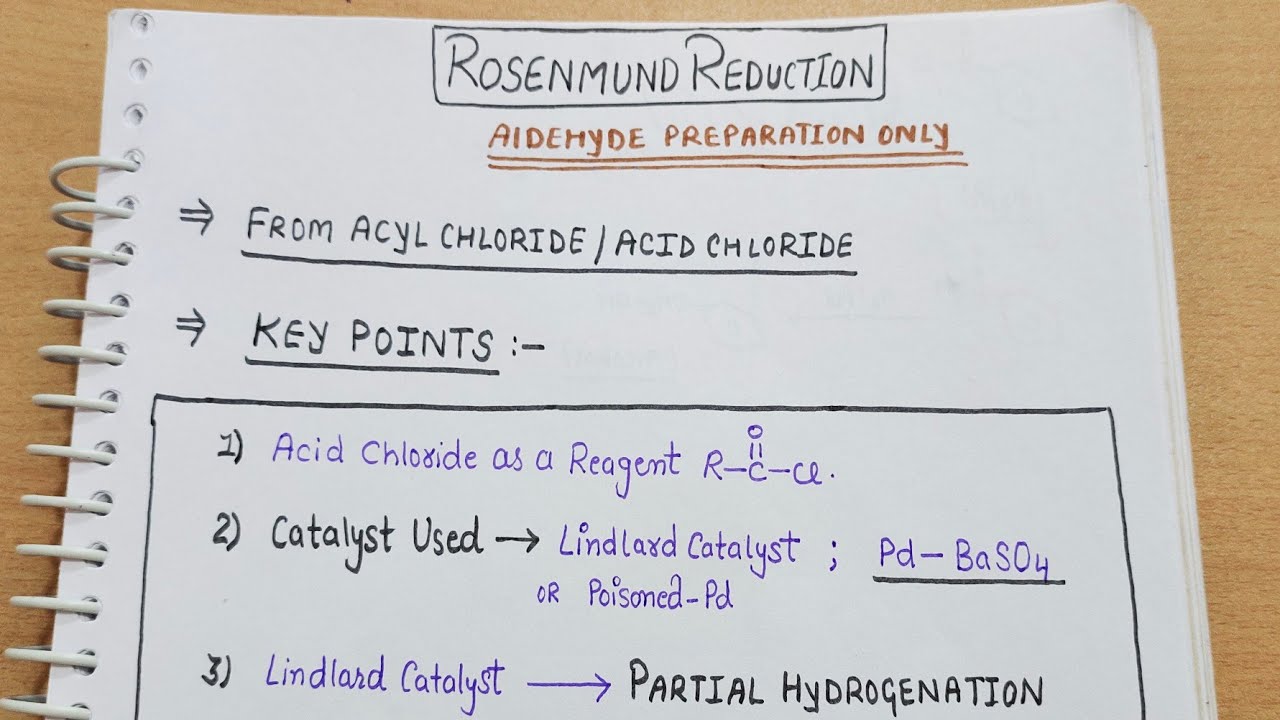 ROSENMUND REDUCTION
AlDEHYDE PREPARATION ONLY
⇒ FROM ACYL CHLORIDE / ACID CHLORIDE
⇒ KEY POINTS :-
1) Acid Chloride as a Reagent R-C-Cl.
O
2) Catalyst Used → Lindlard Catalyst ; Pd-BaSO4
OR Poisoned-Pd
3) Lindlard Catalyst → PARTIAL HYDROGENATION